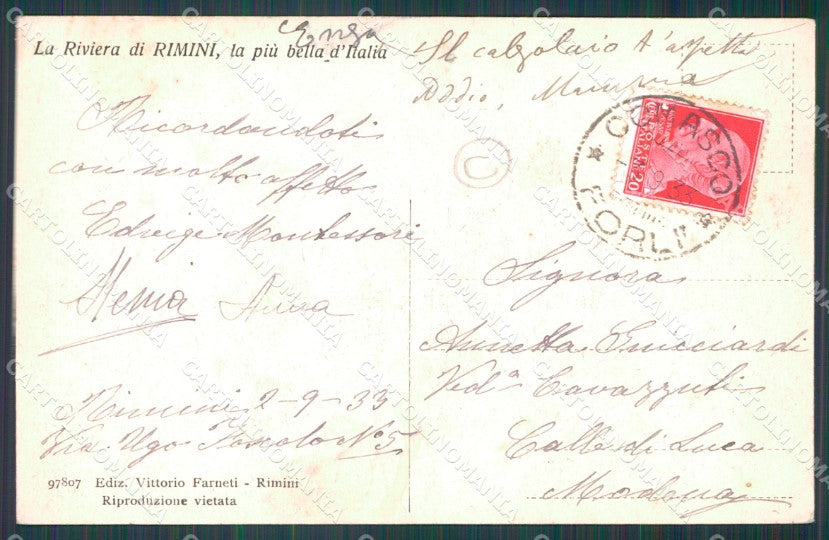 La Riviera di RIMINI, la più bella d'Italia
Ricordandoti
con molto affetto
Edvige Montessori
Anna
Rimini 2-9-33
Via Ugo Foscolo N.5
97807 Ediz. Vittorio Farneti - Rimini
Riproduzione vietata
Il calzolaio t'aspetta
Addio,
C
20
FORLI
Signora
Annetta Guicciardi
Ved.a Cavazzuti
Calle di Luca
Modena
CARTOLINOMANIA